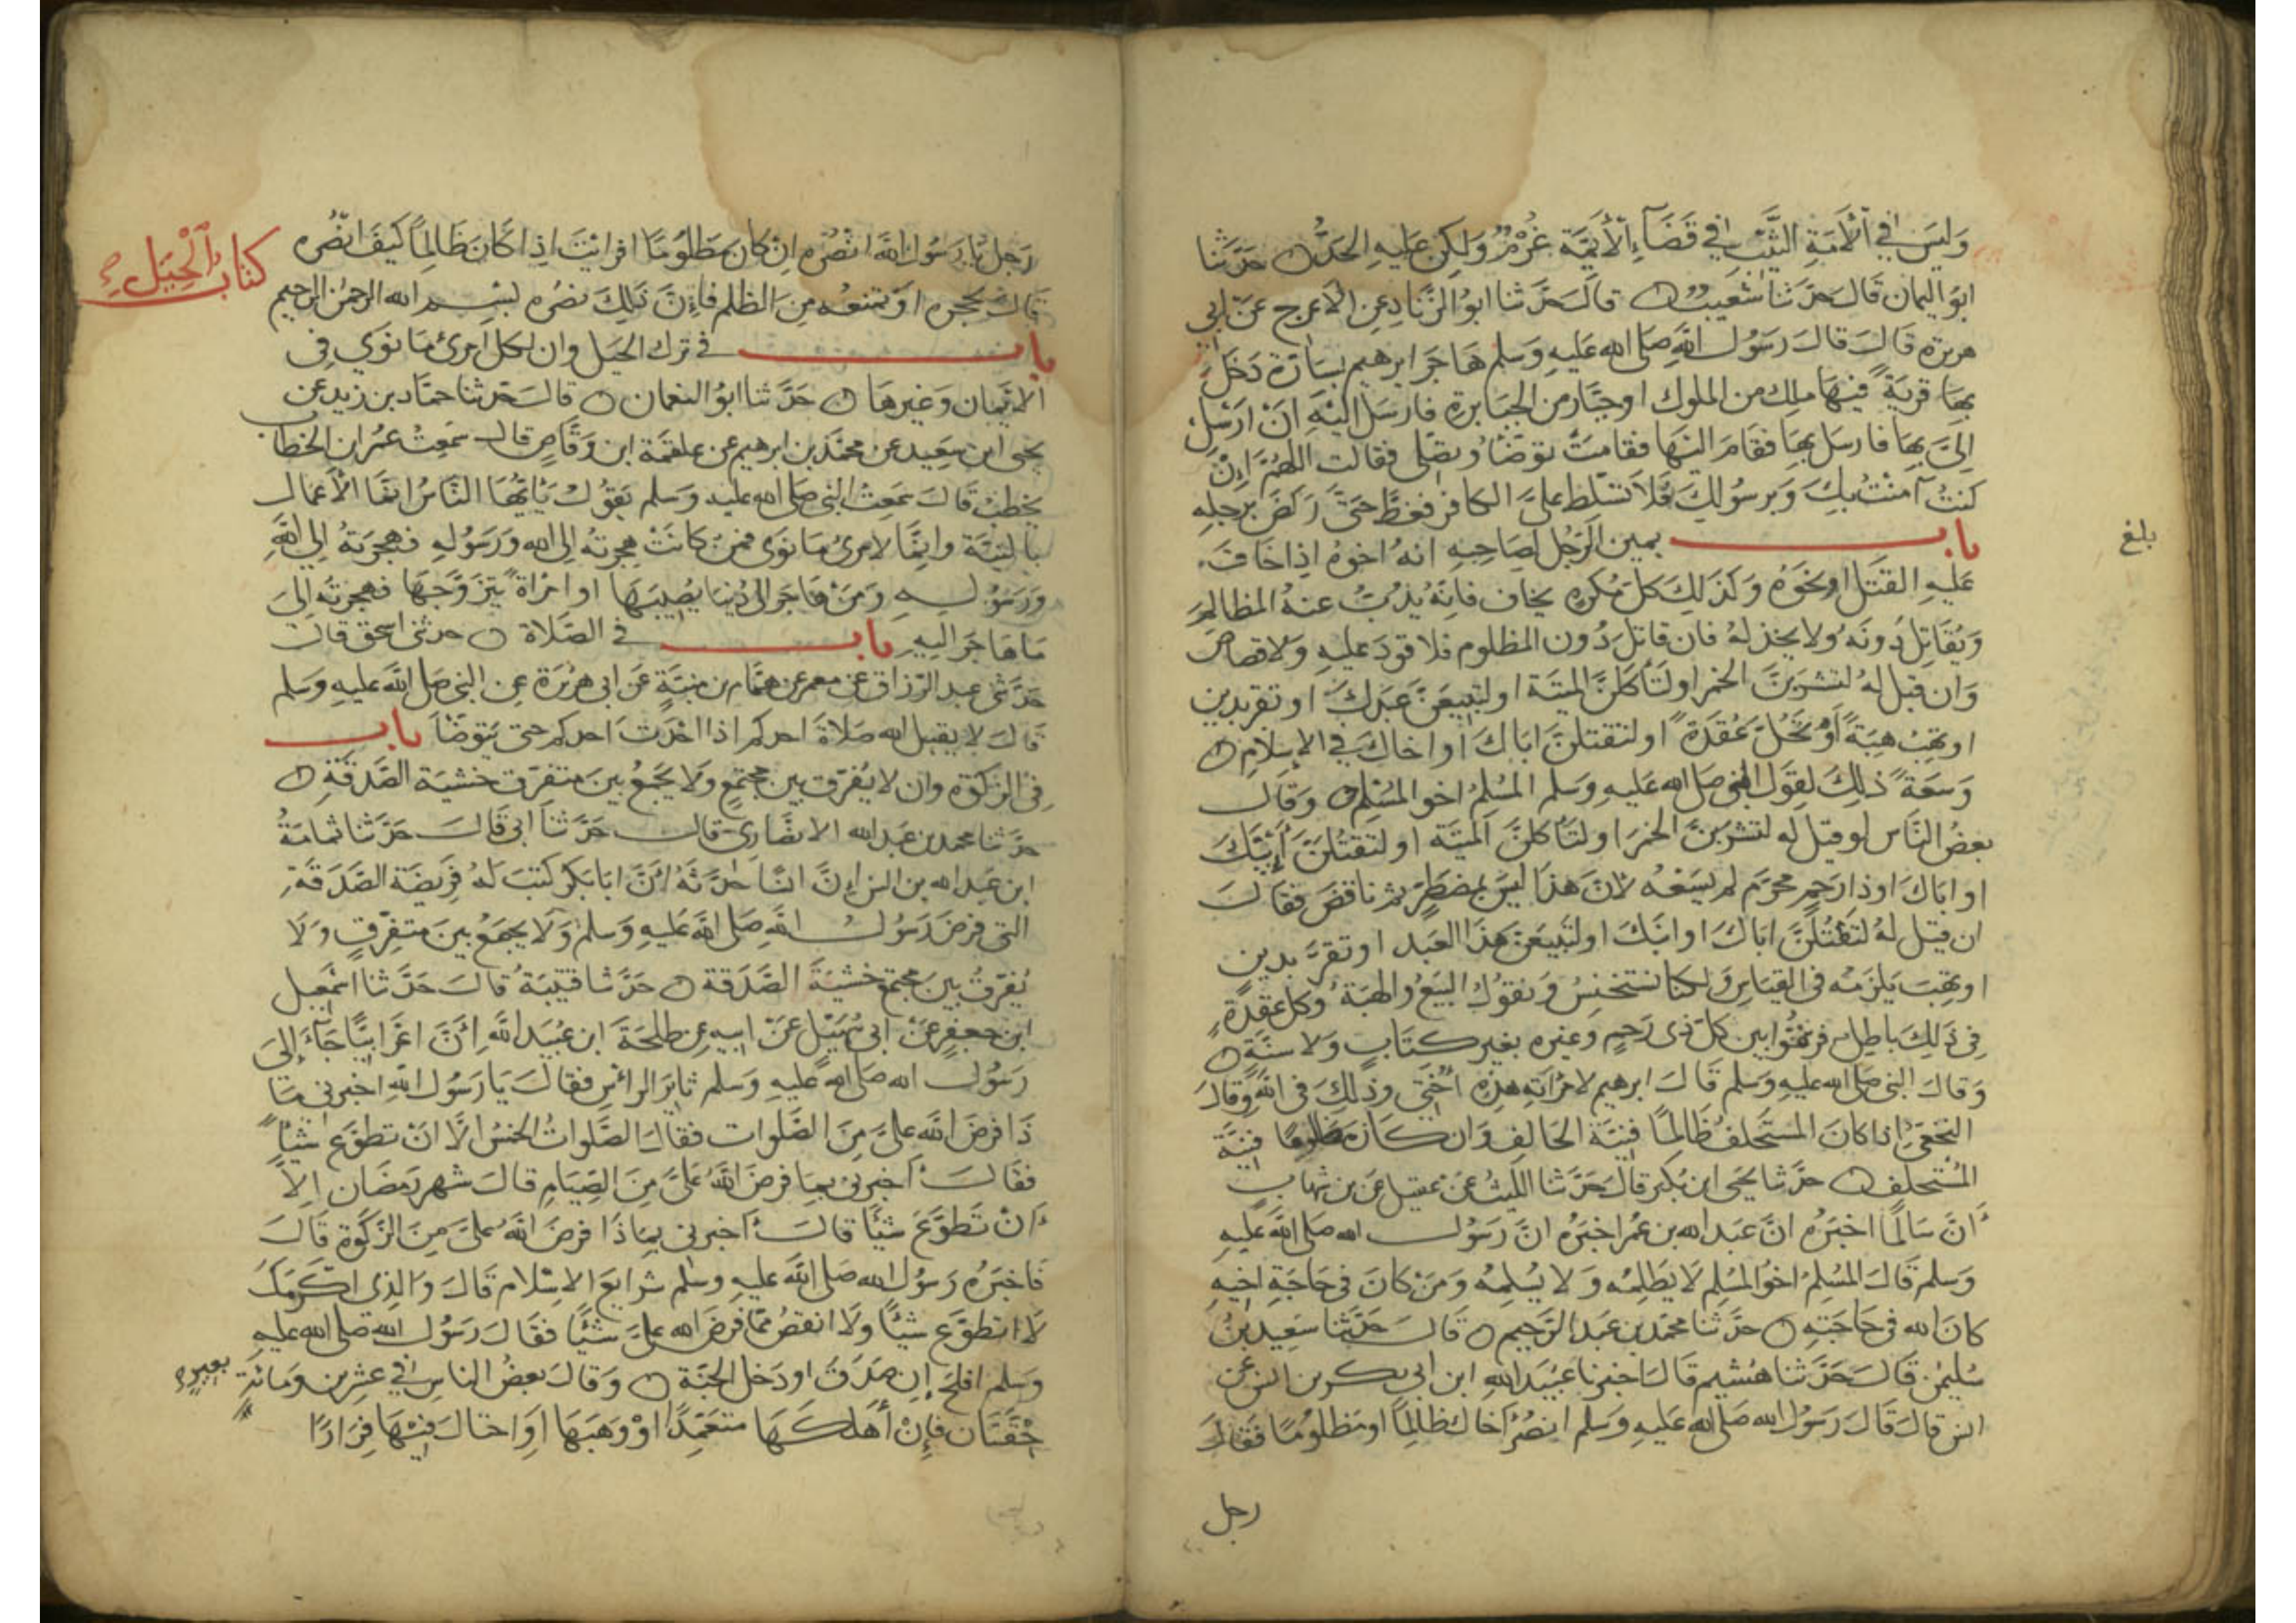 وليس في الأمة الثيب في قضاء الأئمة غرم ولكن عليه الحد حدثنا
ابو اليمان قال حدثنا شعيب قال حدثنا ابو الزناد عن الاعرج عن ابي
هريرة قال قال رسول الله صلى الله عليه وسلم هاجر ابرهيم بسارة دخل
بها قرية فيها ملك من الملوك او جبار من الجبابرة فارسل اليه ان ارسل
الي بها فارسل بها فقام اليها فقامت توضأ وتصلي فقالت اللهم ان
كنت آمنت بك وبرسولك فلا تسلط علي الكافر فغط حتى ركض برجله
باب يمين الرجل لصاحبه انه اخوه اذا خاف
بلغ
عليه القتل او نحوه وكذلك كل مكره يخاف فانه يذب عنه المظالم
ويقاتل دونه ولا يخذله فان قاتل دون المظلوم فلا قود عليه ولا قصاص
وان قيل له لتشربن الخمر او لتأكلن الميتة او لتبيعن عبدك او تقر بدين
او تهب هبة او تحل عقدة او لنقتلن اباك او اخاك في الإسلام
وسعة ذلك لقول النبي صلى الله عليه وسلم المسلم اخو المسلم وقال
بعض الناس لو قيل له لتشربن الخمر او لتأكلن الميتة او لنقتلن ابنك
او اباك او ذا رحم محرم لم يسعه لان هذا ليس بمضطر ثم ناقض فقال
ان قيل له لنقتلن اباك او ابنك او لتبيعن هذا العبد او تقر بدين
او تهب يلزمه في القياس ولكنا نستحسن ونقول البيع والهبة وكل عقدة
في ذلك باطل فرقوا بين كل ذي رحم وغيره بغير كتاب ولا سنة
وقال النبي صلى الله عليه وسلم قال ابرهيم لامرأته هذه اختي وذلك في الله وقال
النخعي اذا كان المستحلف ظالما فنية الحالف وان كان مظلوما فنية
المستحلف حدثنا يحيى ابن بكير قال حدثنا الليث عن عقيل عن بن شهاب
ان سالما اخبره ان عبد الله بن عمر اخبره ان رسول الله صلى الله عليه
وسلم قال المسلم اخو المسلم لا يظلمه ولا يسلمه ومن كان في حاجة اخيه
كان الله في حاجته حدثنا محمد بن عبد الرحيم قال حدثنا سعيد بن
سليمن قال حدثنا هشيم قال اخبرنا عبيد الله ابن ابي بكر بن انس عن
انس قال قال رسول الله صلى الله عليه وسلم انصر اخاك ظالما او مظلوما فقال
رجل
رجل يا رسول الله انصره ان كان مظلوما افرايت اذا كان ظالما كيف انصره
كتاب الحيل
قال تحجزه او تمنعه من الظلم فإن ذلك نصره بسم الله الرحمن الرحيم
باب في ترك الحيل وان لكل امرئ ما نوى في
الايمان وغيرها حدثنا ابو النعمان قال حدثنا حماد بن زيد عن
يحيى ابن سعيد عن محمد بن ابرهيم عن علقمة ابن وقاص قال سمعت عمر ابن الخطاب
يخطب قال سمعت النبي صلى الله عليه وسلم يقول يأيها الناس انما الأعمال
بالنية وانما لامرئ ما نوى فمن كانت هجرته الى الله ورسوله فهجرته الى الله
ورسوله ومن هاجر الى دنيا يصيبها او امراة يتزوجها فهجرته الى
ما هاجر اليه باب في الصلاة حدثني اسحق قال
حدثني عبد الرزاق عن معمر عن همام بن منبة عن ابي هريرة عن النبي صلى الله عليه وسلم
قال لا يقبل الله صلاة احدكم اذا احدث احدكم حتى يتوضأ باب
في الزكوة وان لا يفرق بين مجتمع ولا يجمع بين متفرق خشية الصدقة
حدثنا محمد بن عبد الله الانصاري قال حدثنا ابي قال حدثنا ثمامة
ابن عبد الله بن انس إن انسا حدثه أن ابا بكر كتب له فريضة الصدقة
التي فرض رسول الله صلى الله عليه وسلم ولا يجمع بين متفرق ولا
يفرق بين مجتمع خشية الصدقة حدثنا قتيبة قال حدثنا اسمعيل
ابن جعفر عن ابي سهيل عن ابيه عن طلحة ابن عبيد الله أن اعرابيا جاء إلى
رسول الله صلى الله عليه وسلم ثاير الرائس فقال يا رسول الله اخبرني ما
ذا فرض الله علي من الصلوات فقال الصلوات الخمس الا ان تطوع شيئا
فقال أخبرني بما فرض الله علي من الصيام قال شهر رمضان الا
أن تطوع شيئا قال أخبرني بماذا فرض الله علي من الزكوة قال
فاخبره رسول الله صلى الله عليه وسلم شرايع الاسلام قال والذي اكرمك
لا اتطوع شيئا ولا انقص مما فرض الله علي شيئا فقال رسول الله صلى الله عليه
وسلم افلح إن صدق او دخل الجنة وقال بعض الناس في عشرين ومائة
بعير
حقتان فإن أهلكها متعمدا او وهبها او احتال فيها فرارا